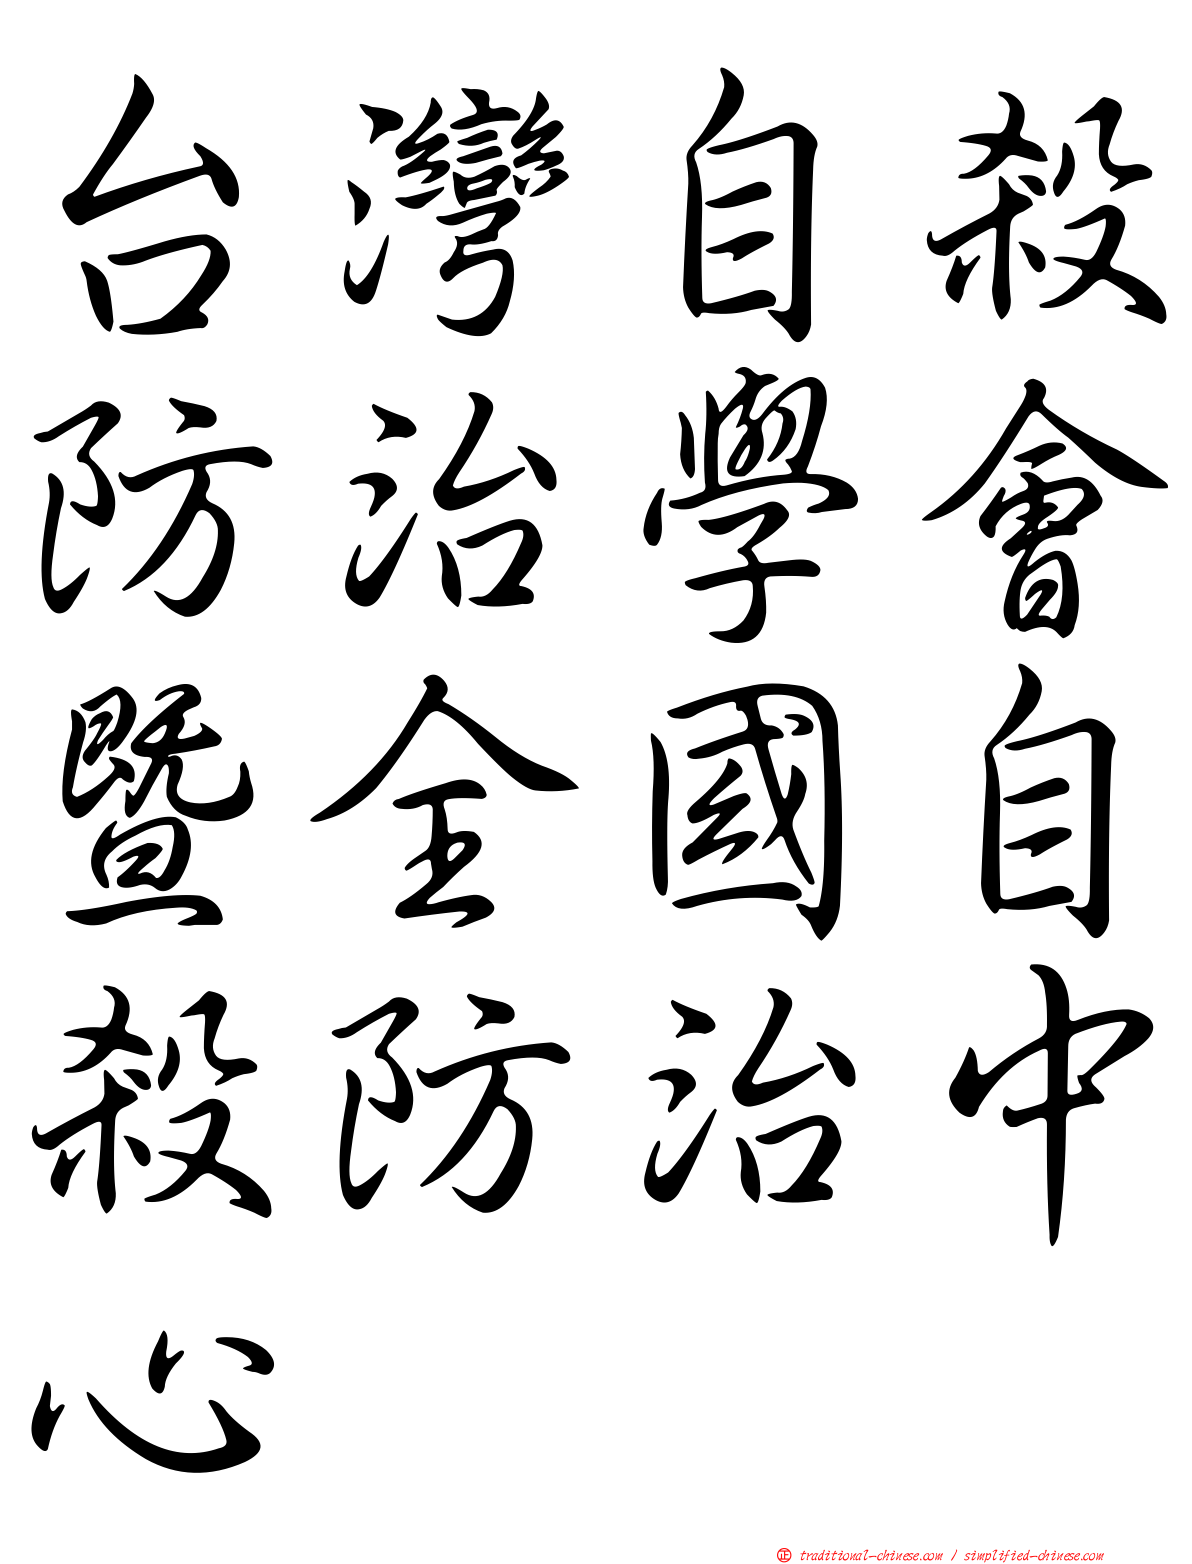 台灣自殺
防治學會
暨全國自
殺防治中
心
㊣ traditional-chinese.com / simplified-chinese.com